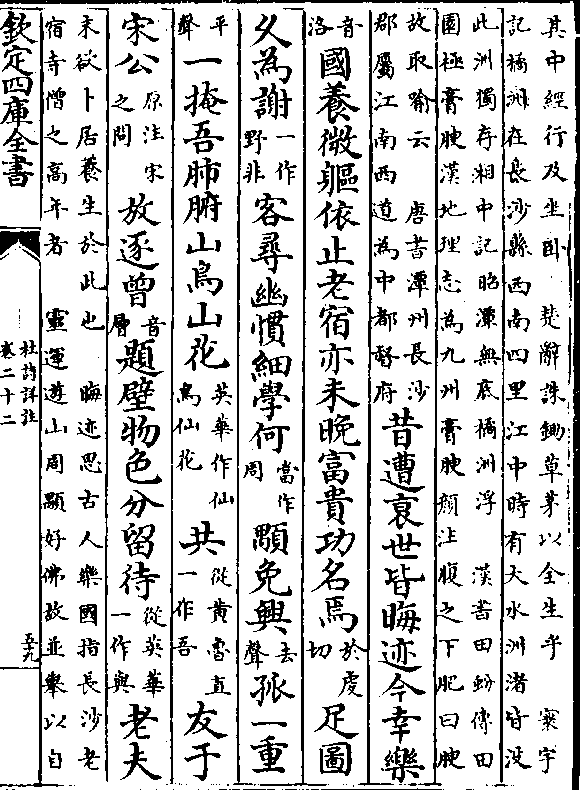 其中經行及坐卧　楚辭誅鋤草茅以全生乎　寰宇
記橘洲在長沙縣西南四里江中時有大水洲渚皆没
此洲獨存湘中記昭潭無底橘洲浮　漢書田蚡傳田
園極膏腴漢地理志為九州膏腴顔注腹之下肥曰腴
故取喻云　唐書潭州長沙
郡屬江南西道為中都督府
昔遭衰世皆晦迹今幸樂
音
洛
國養微軀依止老宿亦未晚富貴功名焉
於䖍
切
足圖
久為謝
一作
野非
客尋幽慣細學何
當作
周
顒免興
去
聲
孤一重
平
聲
一掩吾肺腑山鳥山花
英華作仙
鳥仙花
共
從黄魯直
一作吾
友于
宋公
原注宋
之問
放逐曽
音
層
題壁物色分留待
從英華
一作與
老夫
末欲卜居養生於此也　晦迹思古人樂國指長沙老
宿寺僧之高年者　靈運遊山周顒好佛故並舉以自
欽定四庫全書
杜詩詳註
卷二十二
至九